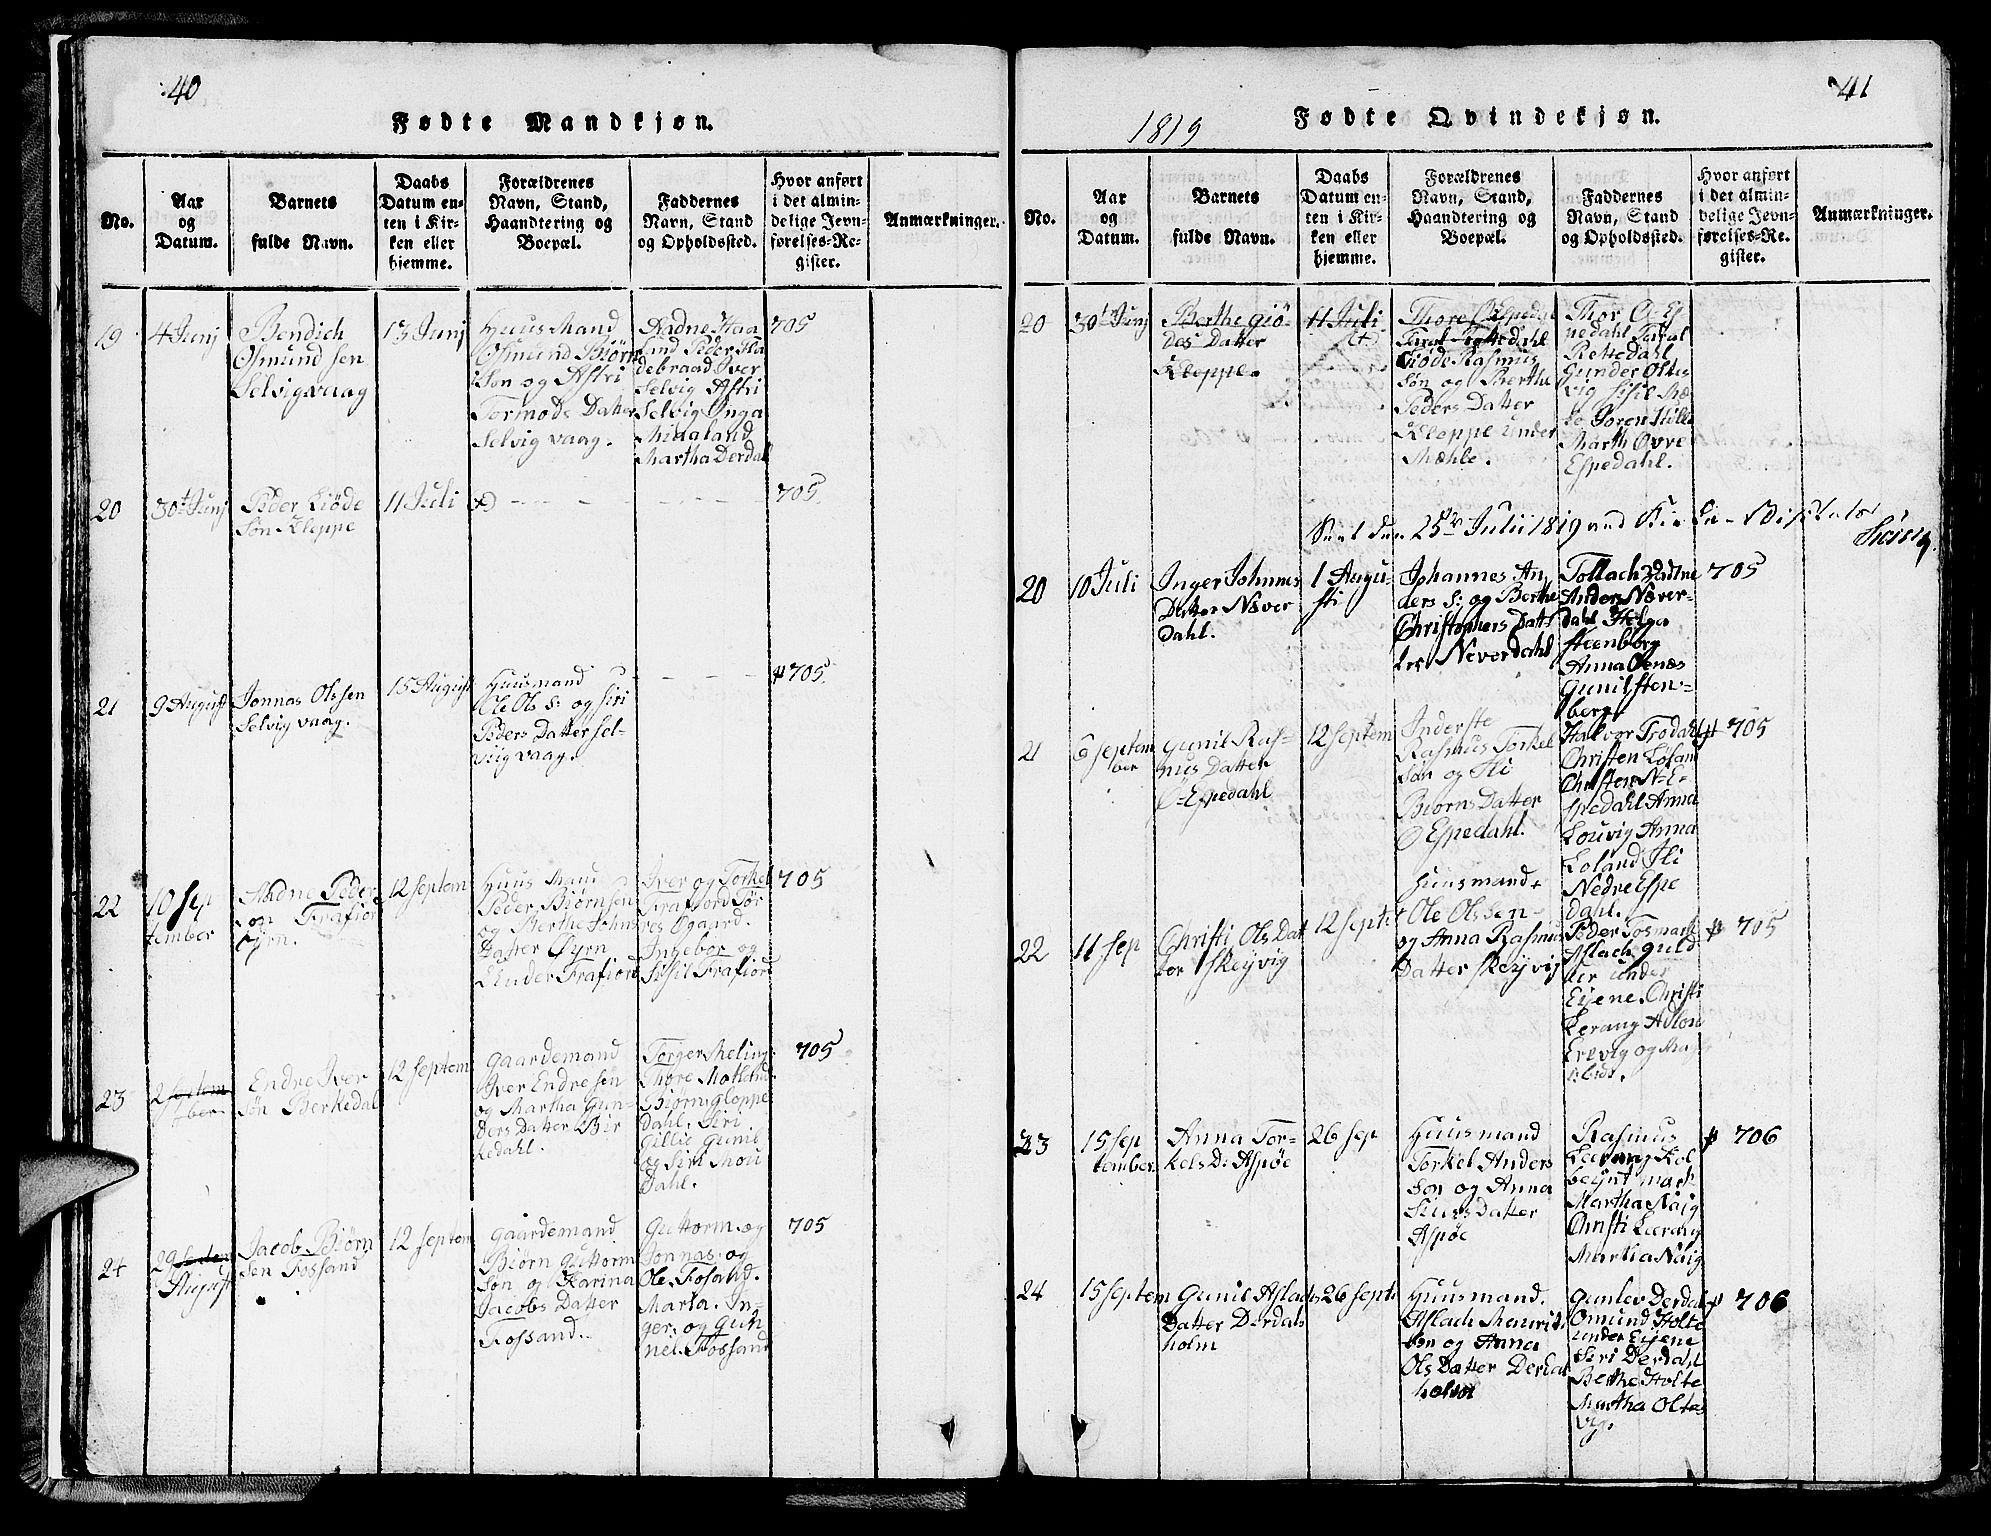 40
Fødte Mandkjøn.
No.
Aar
og
Datum.
Barnets
fulde Navn.
Daabs
Datum en-
ten i Kir-
ken eller
hjemme.
Forældrenes
Navn, Stand,
Haandtering og
Boepæl.
Faddernes
Navn, Stand
og Opholdssted.
Hvor anført
i det almin-
delige Jevn-
førelses-Re-
gister.
Anmærkninger.
19
4 Junj
Bendich
Osmund sen
Selvigvaag
13 Junj
Huus Mand
Osmund Biørn
Søn og Astri
Tormods Datter
Selvig vaag.
Aadne Haa
land Peder Ha
debraad Iver
Selvig Astri
Selvig Inga
Midaland
Martha Derdal
705
20
30t Junj
Peder Giøde
Søn Kleppe
11 Juli
705
21
9 August
Jonnas Olssen
Selvig vaag.
15 August
Huusmand
Ole Ols S: og Siri
Peders Datter Sel-
viig vaag.
705
22
10 Sep
tember
Aadne Peder
son Frafiord
Øyrn.
12 Septem
Huus Mand
Peder Biørnsen
og Berthe Johns
Datter Øyrn
Under Frafiord
Iver og Torkel
Frafiord Tør
res Ogaard.
Ingebor og
Sisil Frafiord
705
23
2 Septem
ber
Endre Iver
Søn Berkedal
12 Septem
Gaardemand
Iver Endresen
og Martha Gun-
ders Datter Bir
kedahl.
Torger Meling
Thore Motland
Biørn Gloppe
Dahl. Siri
Gillie Gunil
og Siri Mou
Dahl.
705
24
29
August
Jacob Biørn
Sen Fossand
12 Septem
Gaardemand
Biørn Guttorm
Søn og Karina
Jacobs Datter
Fossand.
Guttorm og
Jonnas og
Ole Fosand.
Marta. In-
ger, og Gun
nel. Fossand
705
41
1819
Fødte Qvindekjøn.
No.
Aar
og
Datum.
Barnets
fulde Navn.
Daabs
Datum en-
ten i Kir-
ken eller
hjemme.
Forældrenes
Navn, Stand,
Haandtering og
Boepæl.
Faddernes
Navn, Stand
og Opholdssted.
Hvor anført
i det almin-
delige Jevn-
førelses-Re-
gister.
Anmærkninger.
20
30t Junj
Berthe Giø-
des Datter
Kleppe.
11 Juli
Giøde Rasmus
Søn og Berthe
Peders Datter
Kleppe under
Mæhle.
Thor Ø-Es
nedahl
Rettedahl
Gunder Oltes
vig Sisil Mæ
le Joren Hille
Marth Øvre
Espedahl.
25de Julii 1819 ved
20
10 Juli
Inger Johnnes
Datter Næver
Dahl.
1 Augu-
sti
Johannes An
ders S: og Berthe
Christophers Datt
ter Neverdahl
Tollach Aadne
Anders Næver-
dahl Helga
Steenberg
Anna Oenæs
Gunil sten-
berg
705
21
6 Septem
ber
Gunil Ras-
mus Datter
Ø-Espedahl
12 Septem
Inderste
Rasmus Torkel
Søn og Ili
Biorns Datter
Ø Espedahl.
Halvor Trodahl
Christen Løland
Christen N-E-
spedahl Anna
Louvig Anna
Loland Ili
Nedre Espe
dahl.
705
22
11 Sep
Christi Ols Dat
ter Skeyvig
12 Septe
Huusmand
Ole Olssen
og Anna Rasmus
Datter Skeyvig
Peder Fosmark
Aslach Guld
under
Eijene. Christi
Lerang
Erevig og
705
23
15 Sep
tember
Anna Tor-
kels D: Aspøe
26 Sep
Huusmand
Torkel Anders
Søn og Anna
Siurs Datter
Aspøe
Rasmus
Lerang Kol
beynt mark
Martha Naig
Christi Lærang
Martha Naig
706
24
15 Septem
Gunil Aslachs
Datter Derdals
holm
26 Sept
Huusmand.
Aslach Maurits
Søn og Anna
Ols Datter Derdal
holm
Gunlev Derdal
Omund Holte
under Eijene
Siri Derdahl
Berthe Holte
Martha Oltes
vig.
706